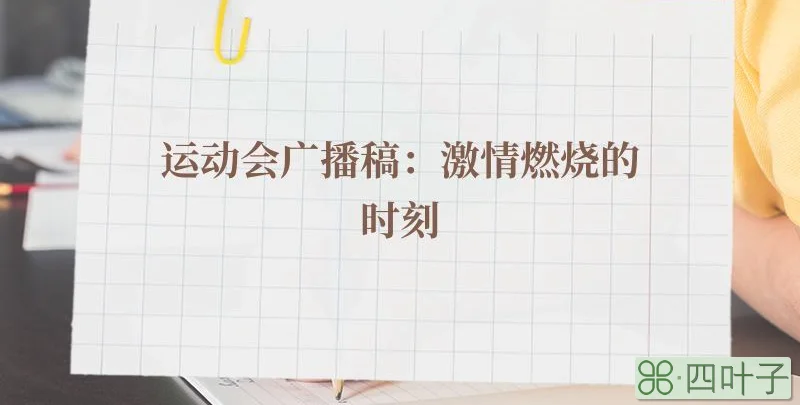 运动会广播稿：激情燃烧的
时刻
四叶子